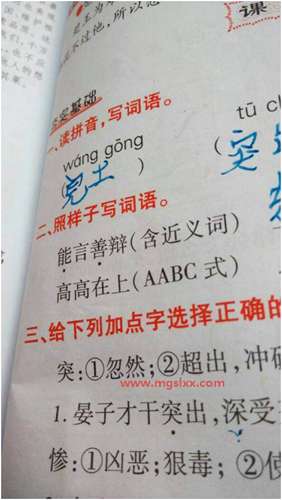 楚王为
不过他，所以他
课
实基础
一、读拼音，写词语。
wáng gōng tū ch
( ) (突
二、照样子写词语。
能言善辩(含近义词)
高高在上(AABC 式)
三、给下列加点字选择正确的
突:①忽然;②超出，冲破
www.mgslxx.com
1.晏子才干突出，深受
惨:①凶恶;狠毒;②使